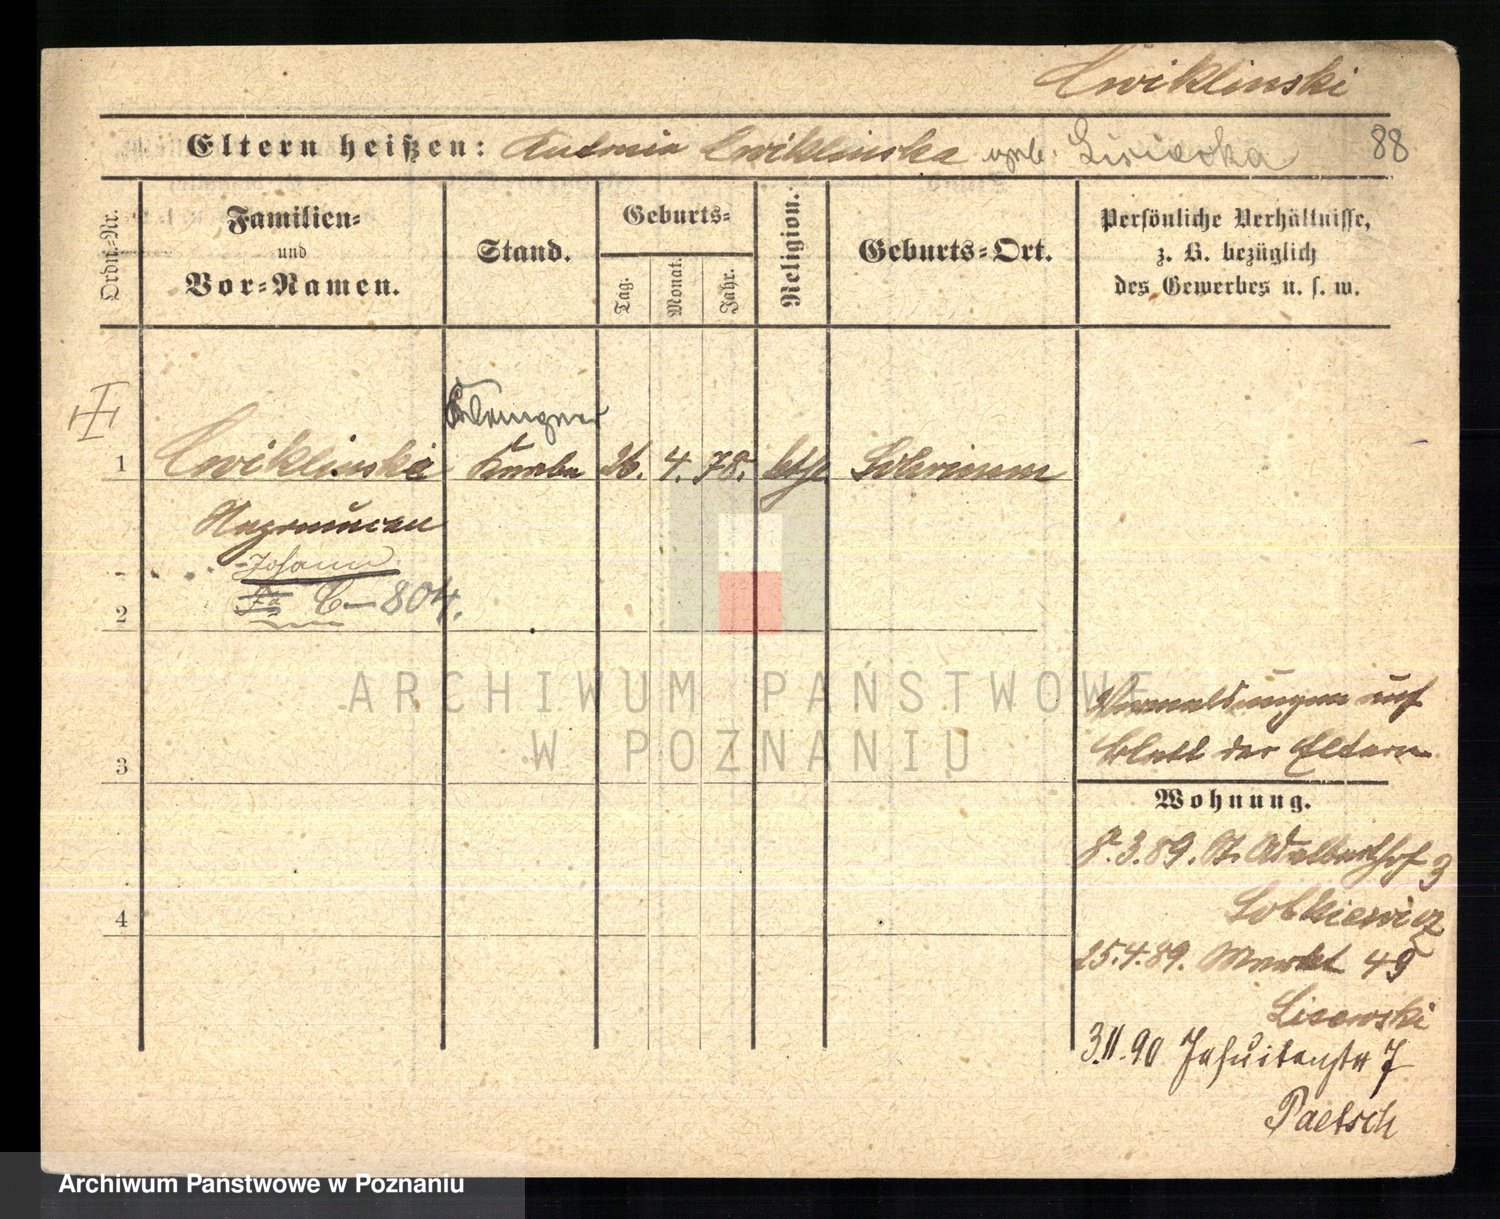 Cwiklinski
88
Eltern heißen: Antonia Cwiklinska geb.
Ordn.-Nr.
Familien- und Vor-Namen.
Stand.
Geburts-
Tag.
Monat.
Jahr.
Religion.
Geburts-Ort.
Persönliche Verhältnisse,
z. B. bezüglich
des Gewerbes u. s. w.
1
Cwiklinski Knabe 26. 4. 78. kthl.
Nepomucen
Johann
C-804.
2
3
4
Anmeldungen auf
Blatt der Eltern
Wohnung.
8.3.89. St. Adalberthof 3
Sobkiewicz
25.4.89. Markt 49
Lisewski
3.11.90 Jesuitenstr 7
Paetsch
ARCHIWUM PAŃSTWOWE
W POZNANIU
Archiwum Państwowe w Poznaniu